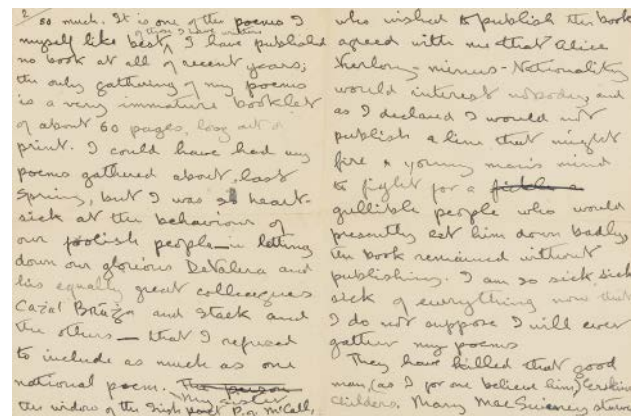 2
so much. It is one of the poems I
of those I have written
myself like best, I have published
no book at all of recent years;
the only gathering of my poems
is a very immature booklet
of about 60 pages, long out of
print. I could have had my
poems gathered about last
Spring, but I was so heart-
sick at the behaviour of
our foolish people — in letting
down our glorious DeValera and
his equally great colleagues
Cazal Brúga and Stack and
the others — that I refused
to include as much as one
national poem. The person
My sister
the widow of the Irish poet P. J. McCall,
who wished to publish the book
agreed with me that Alice
Furlong - minus - Nationality
would interest nobody, and
as I declared I would not
publish a line that might
fire a young man's mind
to fight for a fickle a
gullible people who would
presently let him down badly,
the book remained without
publishing. I am so sick, sick
sick of everything now that
I do not suppose I will ever
gather my poems
They have killed that good
man, (as I for one believe him) Erskine
Childers. Mary MacSwiney starve